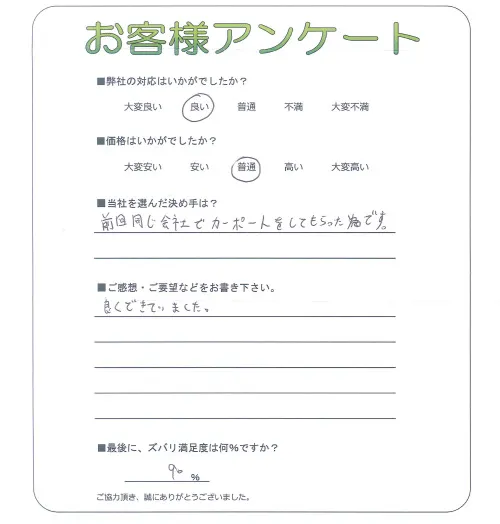 お客様アンケート
■弊社の対応はいかがでしたか？
大変良い 良い 普通 不満 大変不満
■価格はいかがでしたか？
大変安い 安い 普通 高い 大変高い
■当社を選んだ決め手は？
前回同じ会社でカーポートをしてもらった為です。
■ご感想・ご要望などをお書き下さい。
良くできていました。
■最後に、ズバリ満足度は何％ですか？
90 %
ご協力頂き、誠にありがとうございました。